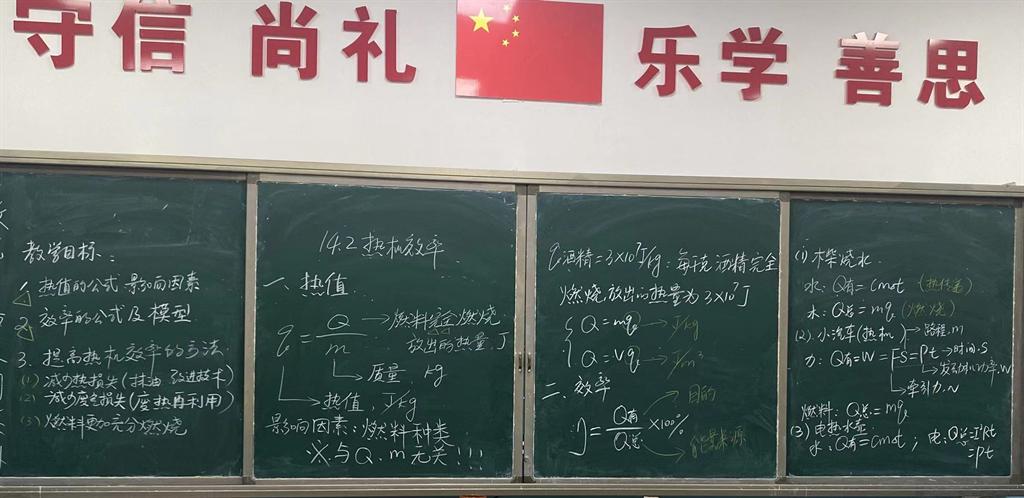 守信 尚礼 乐学 善思
教学目标:
1. 热值的公式 影响因素
2. 效率的公式及模型
3. 提高热机效率的方法
(1) 减少热损失(抹油 改进技术)
(2) 减少废气损失(废热再利用)
(3) 燃料更加充分燃烧
14.2 热机效率
一、热值
q = Q/m → 燃料完全燃烧
放出的热量 J
→ 质量 kg
→ 热值, J/kg
影响因素: 燃料种类
※与Q、m无关!!!
q酒精=3×10⁷J/kg: 每千克酒精完全
燃烧放出的热量为3×10⁷J
Q=mq → J/kg
Q=Vq → J/m³
二、效率
η = Q有/Q总 ×100%
目的
能量来源
(1) 木柴烧水
水: Q有=cmΔt (热传递)
木: Q总=mq (燃烧)
(2) 小汽车(热机) → 路程, m
力: Q有=W=FS=Pt → 时间, S
→ 发动机功率, W
→ 牵引力, N
燃料: Q总=mq
(3) 电热水壶
水: Q有=cmΔt; 电: Q总=I²Rt
=Pt